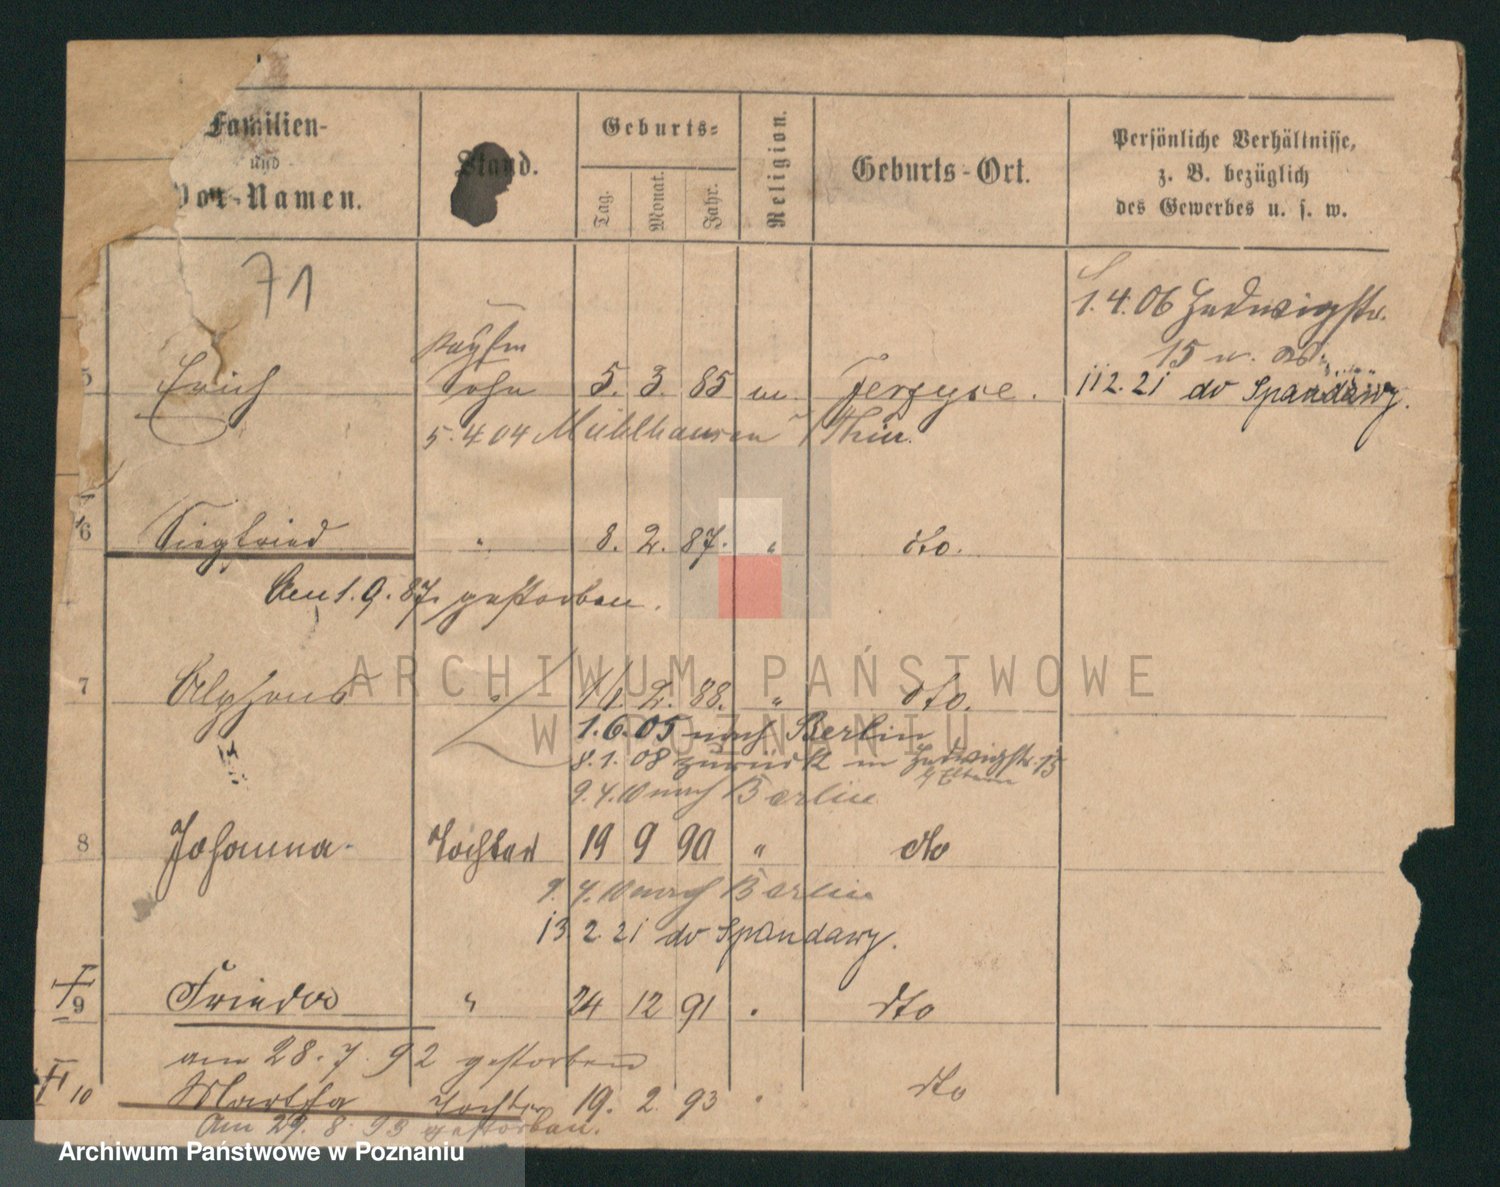 Familien-
und
Vor-Namen.
Stand.
Geburts-
Tag.
Monat.
Jahr.
Religion.
Geburts-Ort.
Persönliche Verhältnisse,
z. B. bezüglich
des Gewerbes u. s. w.
71
1.4.06 Hedwigstr.
15
5 Erich Sohn 5. 3. 85 Jerzyce.
112.21 do Spandawy.
5.4 04 Mühlhausen i/Thür.
6 Siegfried " 8. 2. 87. " dto.
Am 1.9.87. gestorben.
7 Alphons " 11. 2. 88. " dto.
1.6.05 nach Berlin
8.1.08 zurück Hedwigstr. 15
9.4.10 nach Berlin
8 Johanna Tochter 19 9 90 " dto
9.4.10 nach Berlin
13.2.21 do Spandawy.
9 Frieda " 24 12 91 " dto
am 28.7.92 gestorben
10 Martha Tochter 19. 2 93 " dto
Am 29.8.93 gestorben.
ARCHIWUM PAŃSTWOWE
W POZNANIU
Archiwum Państwowe w Poznaniu